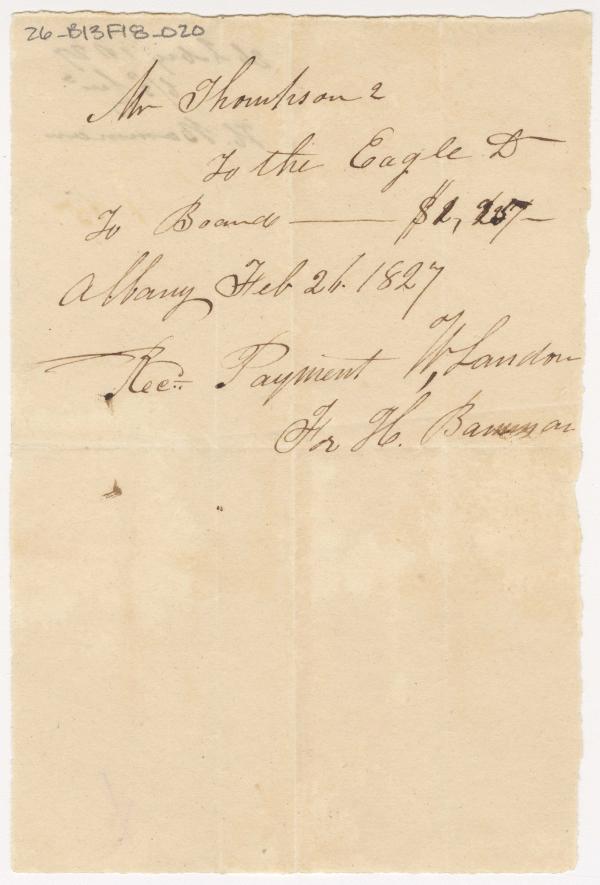 26-B13F18-020
Mr Thompson 2
To the Eagle Dr
To Board —— $2,25
Albany Feb 26. 1827
Recd Payment W Landon
For H. Bamman